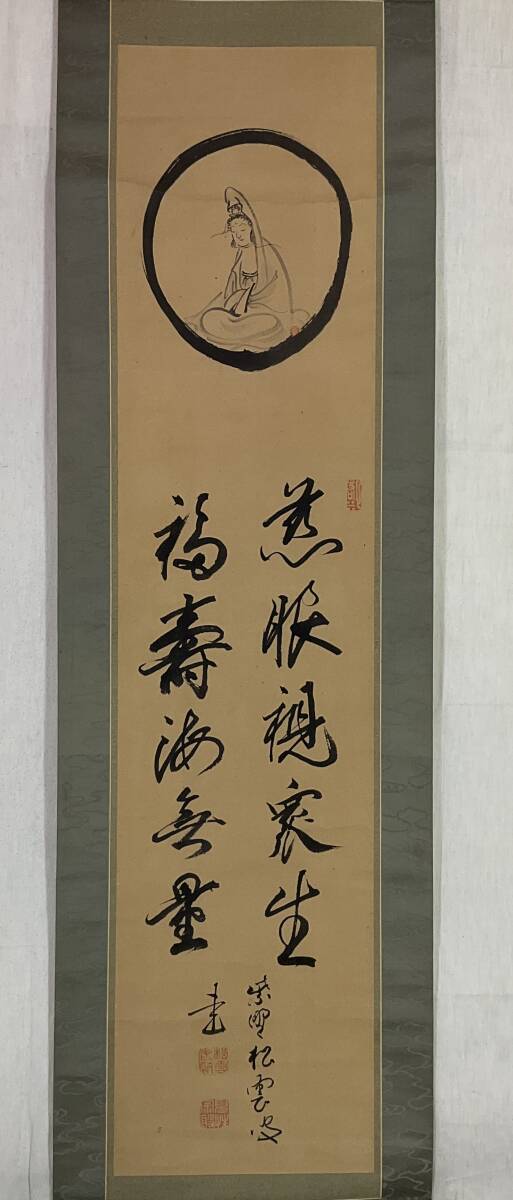 慈眼視衆生
福壽海無量
紫野松雲叟
書